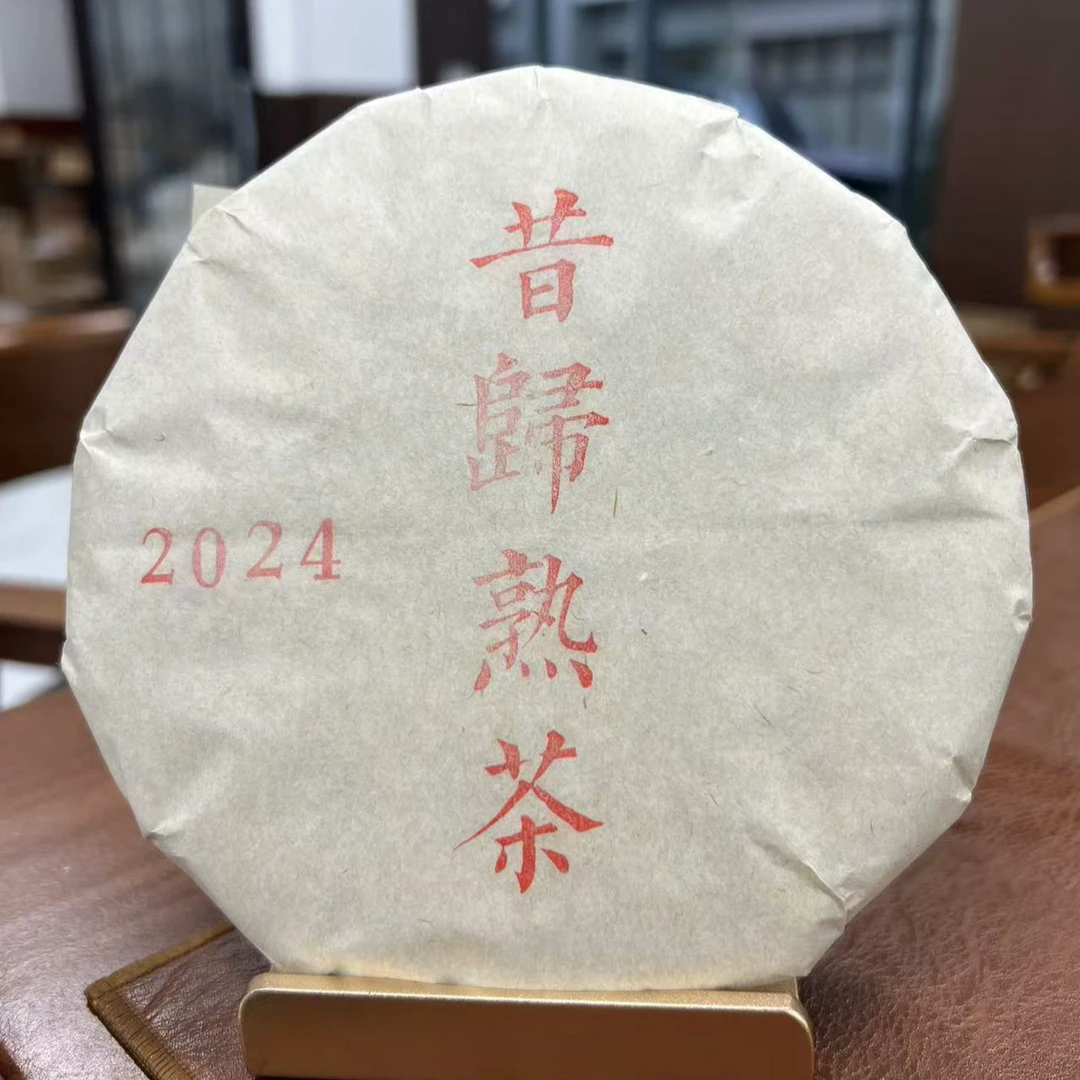 昔歸熟茶
2024